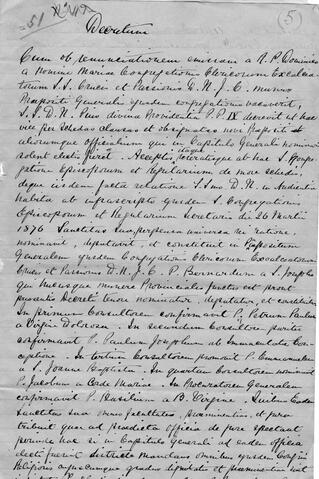 51 XLVI-2
(5)
Decretum
Cum ob renunciationem emissam a R. P. Dominico
a Nomine Mariae Congregationis Clericorum Excalcea-
torum SS. Crucis et Passionis D. N. J. C. munus
Praepositi Generalis ejusdem congregationis vacaverit,
SS. D. N. Pius divina Providentia P. P. IX decrevit ut hac
vice per schedas clausas et obsignatas novi Praepositi
aliorumque Officialium qui in Capitulo Generali nominari
solent electio fieret. Acceptis itaque relatisque ab hac S. Congre-
gatione Episcoporum et Regularium de more schedis,
deque iisdem facta relatione SSmo D. N. in Audientia
habita ab infrascripto ejusdem S. Congregationis
Episcoporum et Regularium Secretario die 26 Martii
1876 Sanctitas Sua perpensa universa rei ratione,
nominavit, deputavit, et constituit in Praepositum
Generalem ejusdem Congregationis Clericorum Excalceatorum
Crucis et Passionis D. N. J. C. P. Bernardum a S. Josepho
qui hucusque munere Provincialis functus est prout
praesentis Decreti tenore nominatur, deputatur, et constituitur.
In primum Consultorem confirmavit P. Petrum Paulum
a Virgine Dolorosa. In secundum Consultorem pariter
confirmavit P. Paulum Josephum ab Immaculata Con-
ceptione. In tertium Consultorem promovit P.
a S. Joanne Baptista. In quartum Consultorem nominavit
P. Jacobum a Corde Mariae. In Procuratorem Generalem
confirmavit P. Basilium a B. Virgine. Quibus eadem
Sanctitas Sua omnes facultates, praeeminentias, et jura
tribuit quae ad praedicta officia de jure spectant
perinde hac si in Capitulo Generali ad eadem officia
electi fuerint districte mandans omnibus ejusdem Congreg
Religiosis cujuscumque gradus dignitatis et praeeminentiae sint